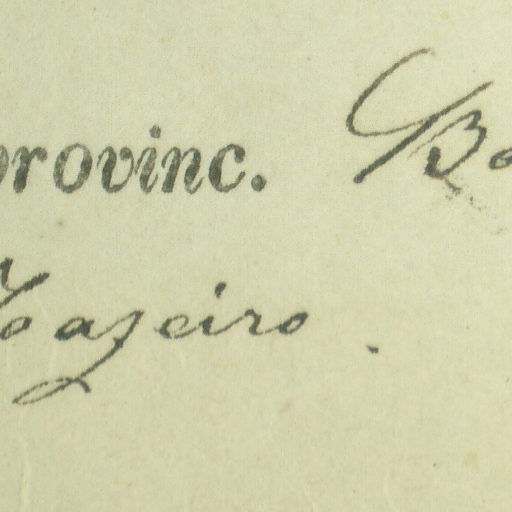 provinc. Ba
Joazeiro.